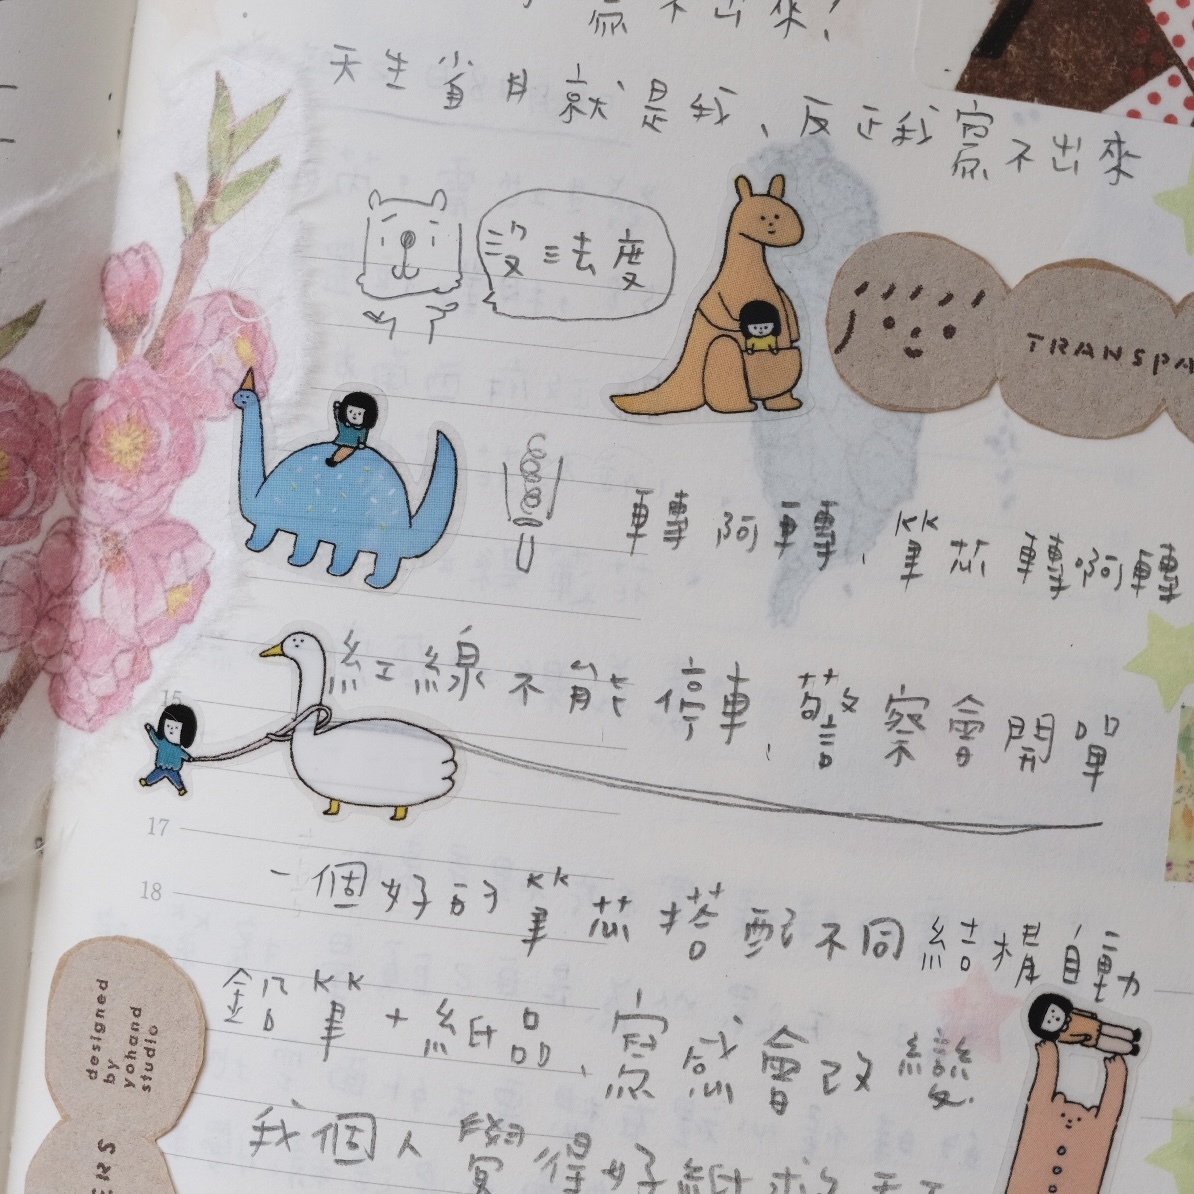 寫不出來！
天生省月就是我、反正我寫不出來
沒法度
TRANSPA
轉轉阿轉轉、筆芯轉阿轉
紅線不能停車、警察會開單
17
一個好的筆芯搭配不同結構自動
18
鉛筆+紙品、寫感會改變
designed
by
yohand
studio
我個人覺得好紙
ERS
15